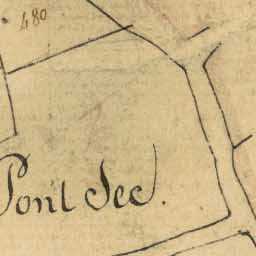 480
Pont Sec.